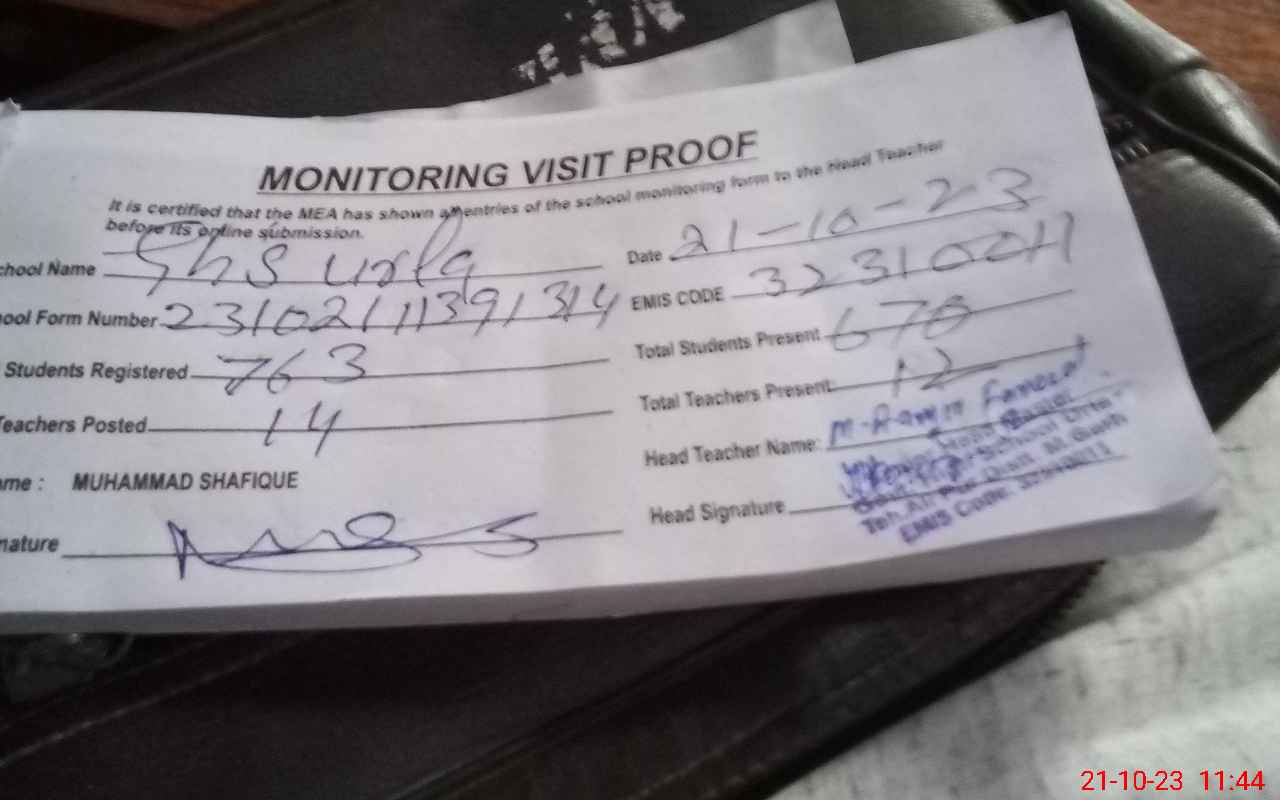 MONITORING VISIT PROOF
It is certified that the MEA has shown all entries of the school monitoring form to the Head Teacher
before its online submission.
chool Name Ghs urla
Date 21-10-23
ool Form Number 23102111391314
EMIS CODE
Students Registered 763
Total Students Present 670
Teachers Posted 14
Total Teachers Present: 12
ame : MUHAMMAD SHAFIQUE
Head Teacher Name:
nature
Head Signature
EMIS Code:
21-10-23 11:44